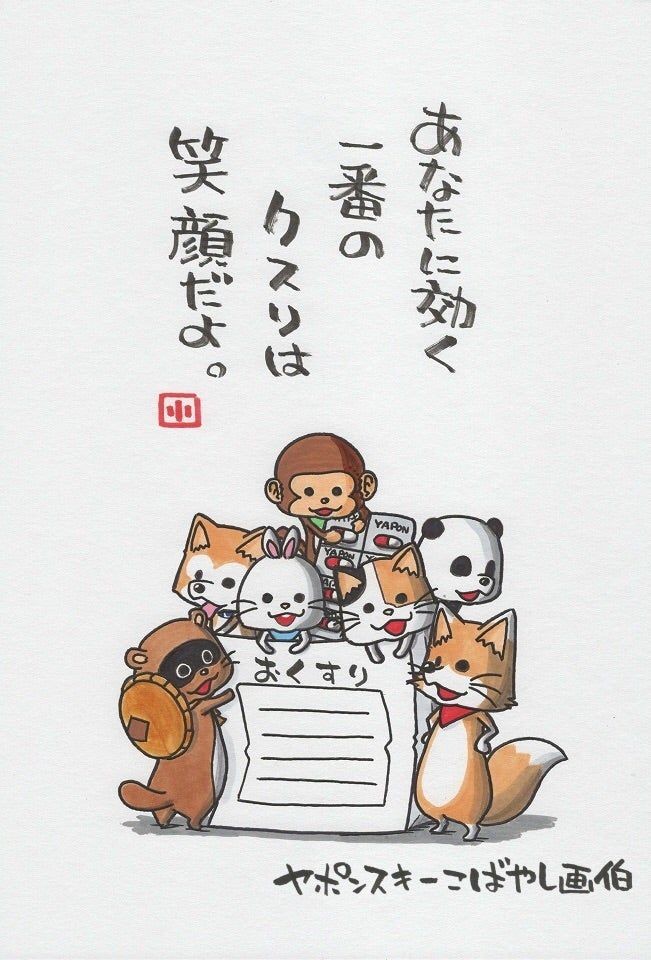 あなたに効く
一番の
クスリは
笑顔だよ。
小
YAPON
YAPON
おくすり
ヤポンスキーこばやし画伯